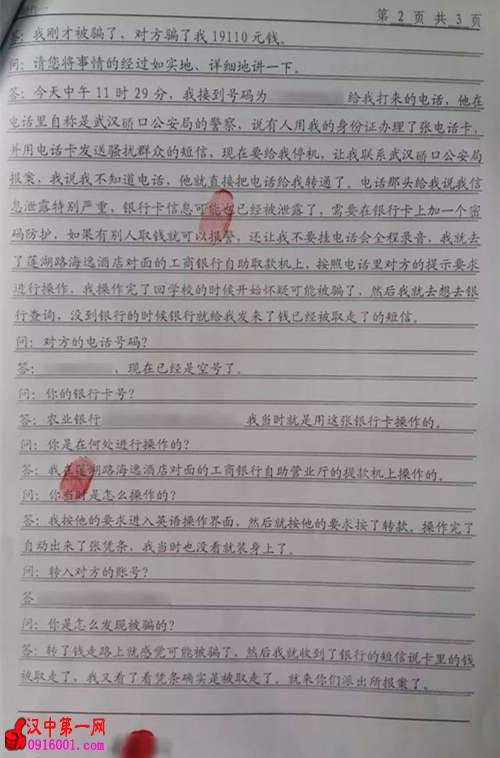 第 2 页 共 3 页
答：我刚才被骗了，对方骗了我 19110 元钱。
问：请您将事情的经过如实地、详细地讲一下。
答：今天中午 11 时 29 分，我接到号码为 给我打来的电话，他在
电话里自称是武汉硚口公安局的警察，说有人用我的身份证办理了张电话卡，
并用电话卡发送骚扰群众的短信，现在要给我停机，让我联系武汉硚口公安局
报案，我说我不知道电话，他就直接把电话给我转通了。电话那头给我说我信
息泄露特别严重，银行卡信息可能也已经被泄露了，需要在银行卡上加一个密
码防护，如果有别人取钱就可以报警，还让我不要挂电话会全程录音，我就去
了莲湖路海逸酒店对面的工商银行自助取款机上，按照电话里对方的提示要求
进行操作，我操作完了回学校的时候开始怀疑可能被骗了，然后我就去想去银
行查询，没到银行的时候银行就给我发来了钱已经被取走了的短信。
问：对方的电话号码？
答： ，现在已经是空号了。
问：你的银行卡号？
答：农业银行 我当时就是用这张银行卡操作的。
问：你是在何处进行操作的？
答：我去莲湖路海逸酒店对面的工商银行自助营业厅的提款机上操作的。
问：你当时是怎么操作的？
答：我按他的要求进入英语操作界面，然后就按他的要求按了转款。操作完了
自动出来了张凭条，我当时也没看就装身上了。
问：转入对方的账号？
答
问：你是怎么发现被骗的？
答：转了钱走路上就感觉可能被骗了，然后我就收到了银行的短信说卡里的钱
被取走了，我又看了看凭条确实是被取走了，就来你们派出所报案了。
汉中第一网
0916001.com